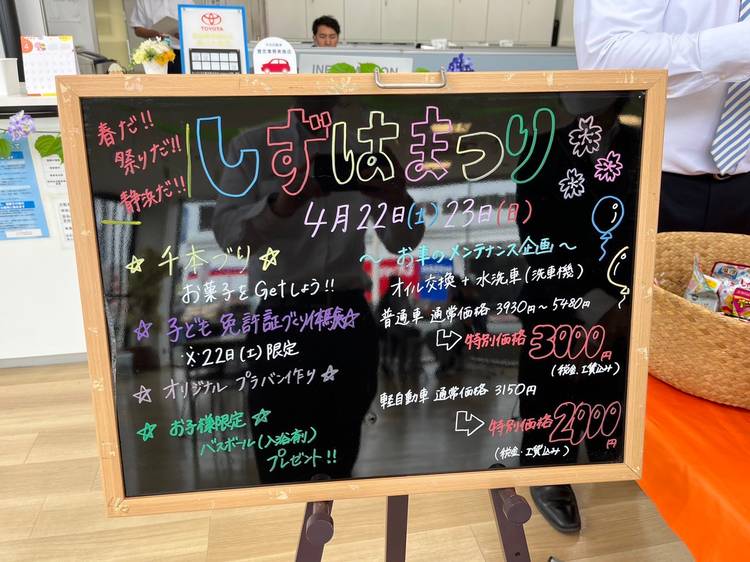 春だ!!
祭りだ!!
静浜だ!!
しずはまつり
4月22日(土)23日(日)
☆ 千本づり ☆
お菓子をGetしよう!!
☆ 子ども 免許証づくり体験☆
※22日(土)限定
☆ オリジナル プラバン作り ☆
☆ お子様限定 ☆
バスボール(入浴剤)
プレゼント!!
~ お車のメンテナンス企画 ~
オイル交換 + 水洗車(洗車機)
普通車 通常価格 3930円~5480円
特別価格 3000円
(税金・工賃込み)
軽自動車 通常価格 3150円
特別価格 2900円
(税金・工賃込み)
TOYOTA
INFORMATION